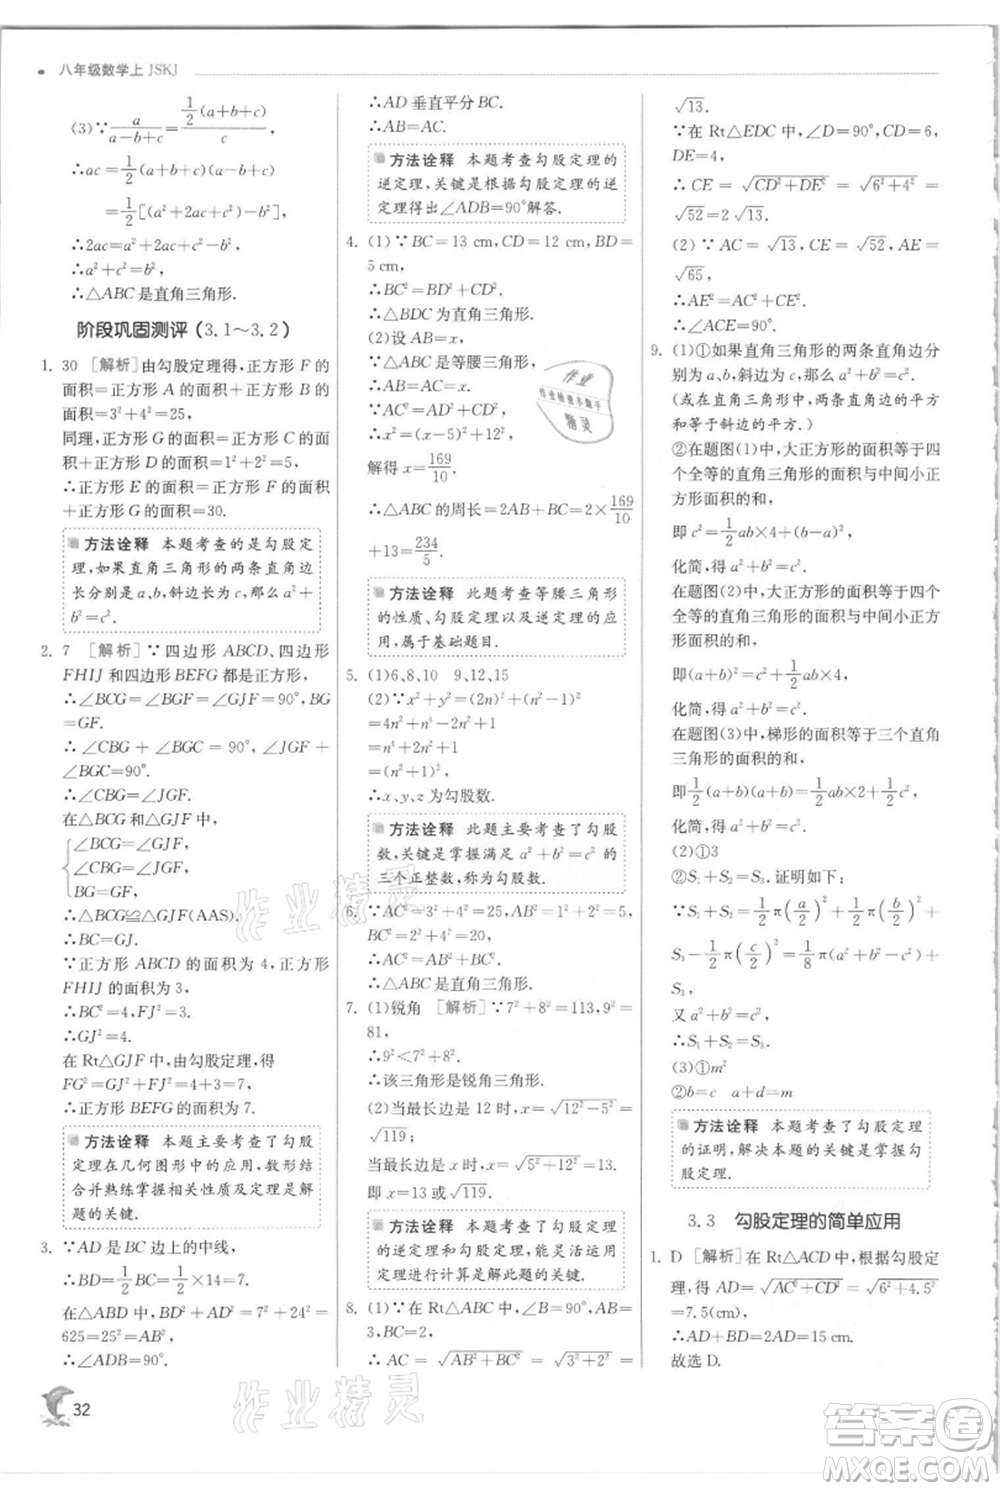 八年级数学上 JSKJ
(3)∵a/(a-b+c)=½(a+b+c)/c,
∴ac=½(a+b+c)(a-b+c)
=½[(a²+2ac+c²)-b²],
∴2ac=a²+2ac+c²-b²,
∴a²+c²=b²,
∴△ABC是直角三角形.
阶段巩固测评(3.1～3.2)
1. 30 [解析]由勾股定理得,正方形 F 的
面积=正方形 A 的面积+正方形 B 的
面积=3²+4²=25,
同理,正方形 G 的面积=1²+2²=5,
∴正方形 G 的面积=30.
方法诠释 本题考查的是勾股定
理,如果直角三角形的两条直角边
长分别是a、b,斜边长为c,那么a²+
b²=c².
2. 7 [解析]∵四边形 ABCD、四边形
FHIJ 和四边形 BEFG 都是正方形,
∴∠CBG=∠BGF=∠GJF=90°,BG
=GF.
∴∠CBG+∠BGC=90°,∠JGF+
∠BGC=90°.
∴∠CBG=∠JGF.
在△BCG和△GJF中,
∠BCG=∠GJF,
∠CBG=∠JGF,
BG=GF,
∴△BCG≌△GJF(AAS).
∴BC=GJ.
∵正方形 ABCD 的面积为 4,正方形
FHIJ 的面积为 3,
∴BC²=4,FJ²=3,
∴GJ²=4.
在 Rt△GJF 中,由勾股定理,得
FG²=FJ²+GJ²=3+4=7,
∴正方形 BEFG 的面积为 7.
方法诠释 本题主要考查了勾股
定理在几何图形中的应用,数形结
合并熟练掌握相关性质及定理是解
题的关键.
3. ∵AD是BC边上的中线,
∴BD=½BC=½×14=7,
在△ABD中,BD²+AD²=7²+24²=
625=25²=AB²,
∴∠ADB=90°.
∴AD 垂直平分 BC.
∴AB=AC.
方法诠释 本题考查勾股定理的
逆定理,关键是根据勾股定理的逆
定理得出∠ADB=90°解答.
4. (1)∵BC=13 cm,CD=12 cm,BD=
5 cm,
∴BC²=BD²+CD².
∴△BDC为直角三角形.
(2)设 AB=x,
∵△ABC是等腰三角形,
∴AB=AC=x.
∵AC²=AD²+CD²,
∴x²=(x-5)²+12²,
解得 x=169/10.
∴△ABC 的周长=2AB+BC=2×169/10
+13=234/5.
方法诠释 此题考查等腰三角形
的性质、勾股定理以及逆定理的应
用,属于基础题目.
5. (1)6,8,10 9,12,15
(2)∵x²+y²=(2n)²+(n²-1)²
=4n²+n⁴-2n²+1
=n⁴+2n²+1
=(n²+1)²,
∴x、y、z为勾股数.
方法诠释 此题主要考查了勾股
数,关键是掌握满足 a²+b²=c² 的
三个正整数,称为勾股数.
6. ∵AC²=3²+4²=25,AB²=1²+2²=5,
BC²=2²+4²=20,
∴AC²=AB²+BC²,
∴△ABC是直角三角形.
7. (1)锐角 [解析]∵7²+8²=113,9²=
81,
∴9²<7²+8².
∴该三角形是锐角三角形.
(2)当最长边是 12 时,x=√(12²-5²)=
√119;
当最长边是 x 时,x=√(5²+12²)=13.
即 x=13 或 √119.
方法诠释 本题考查了勾股定理
的逆定理和勾股定理,能灵活运用
定理进行计算是解此题的关键.
8. (1)∵在 Rt△ABC 中,∠B=90°,AB=
3,BC=2,
∴AC=√(AB²+BC²)=√(3²+2²)=
√13.
∵在 Rt△EDC 中,∠D=90°,CD=6,
DE=4,
∴CE=√(CD²+DE²)=√(6²+4²)=
√52=2√13.
(2)∵AC=√13,CE=√52,AE=
√65,
∴AE²=AC²+CE².
∴∠ACE=90°.
9. (1)①如果直角三角形的两条直角边分
别为a、b,斜边为c,那么a²+b²=c².
(或在直角三角形中,两条直角边的平方
和等于斜边的平方.)
②在题图(1)中,大正方形的面积等于四
个全等的直角三角形的面积与中间小正
方形面积的和,
即c²=½ab×4+(b-a)²,
化简,得 a²+b²=c².
在题图(2)中,大正方形的面积等于四个
全等的直角三角形的面积与中间小正方
形面积的和,
即(a+b)²=c²+½ab×4,
化简,得 a²+b²=c².
在题图(3)中,梯形的面积等于三个直角
三角形的面积的和,
即½(a+b)(a+b)=½ab×2+½c²,
化简,得 a²+b²=c².
(2)①3
②S₁+S₂=S₃.证明如下:
∵S₁+S₂=½π(a/2)²+½π(b/2)²+
S₃-½π(c/2)²=⅛π(a²+b²-c²)+
S₃,
又 a²+b²=c²,
∴S₁+S₂=S₃.
(3)①m²
②b=c a+d=m
方法诠释 本题考查勾股定理
的证明,解决本题的关键是掌握勾
股定理.
3.3 勾股定理的简单应用
1. D [解析]在Rt△ACD中,根据勾股定
理,得 AD=√(AC²+CD²)=√(6²+4.5²)
=7.5(cm),
∴AD+BD=2AD=15 cm.
故选 D.
32
作业精灵
作业精灵
答案卷
MXQE.COM